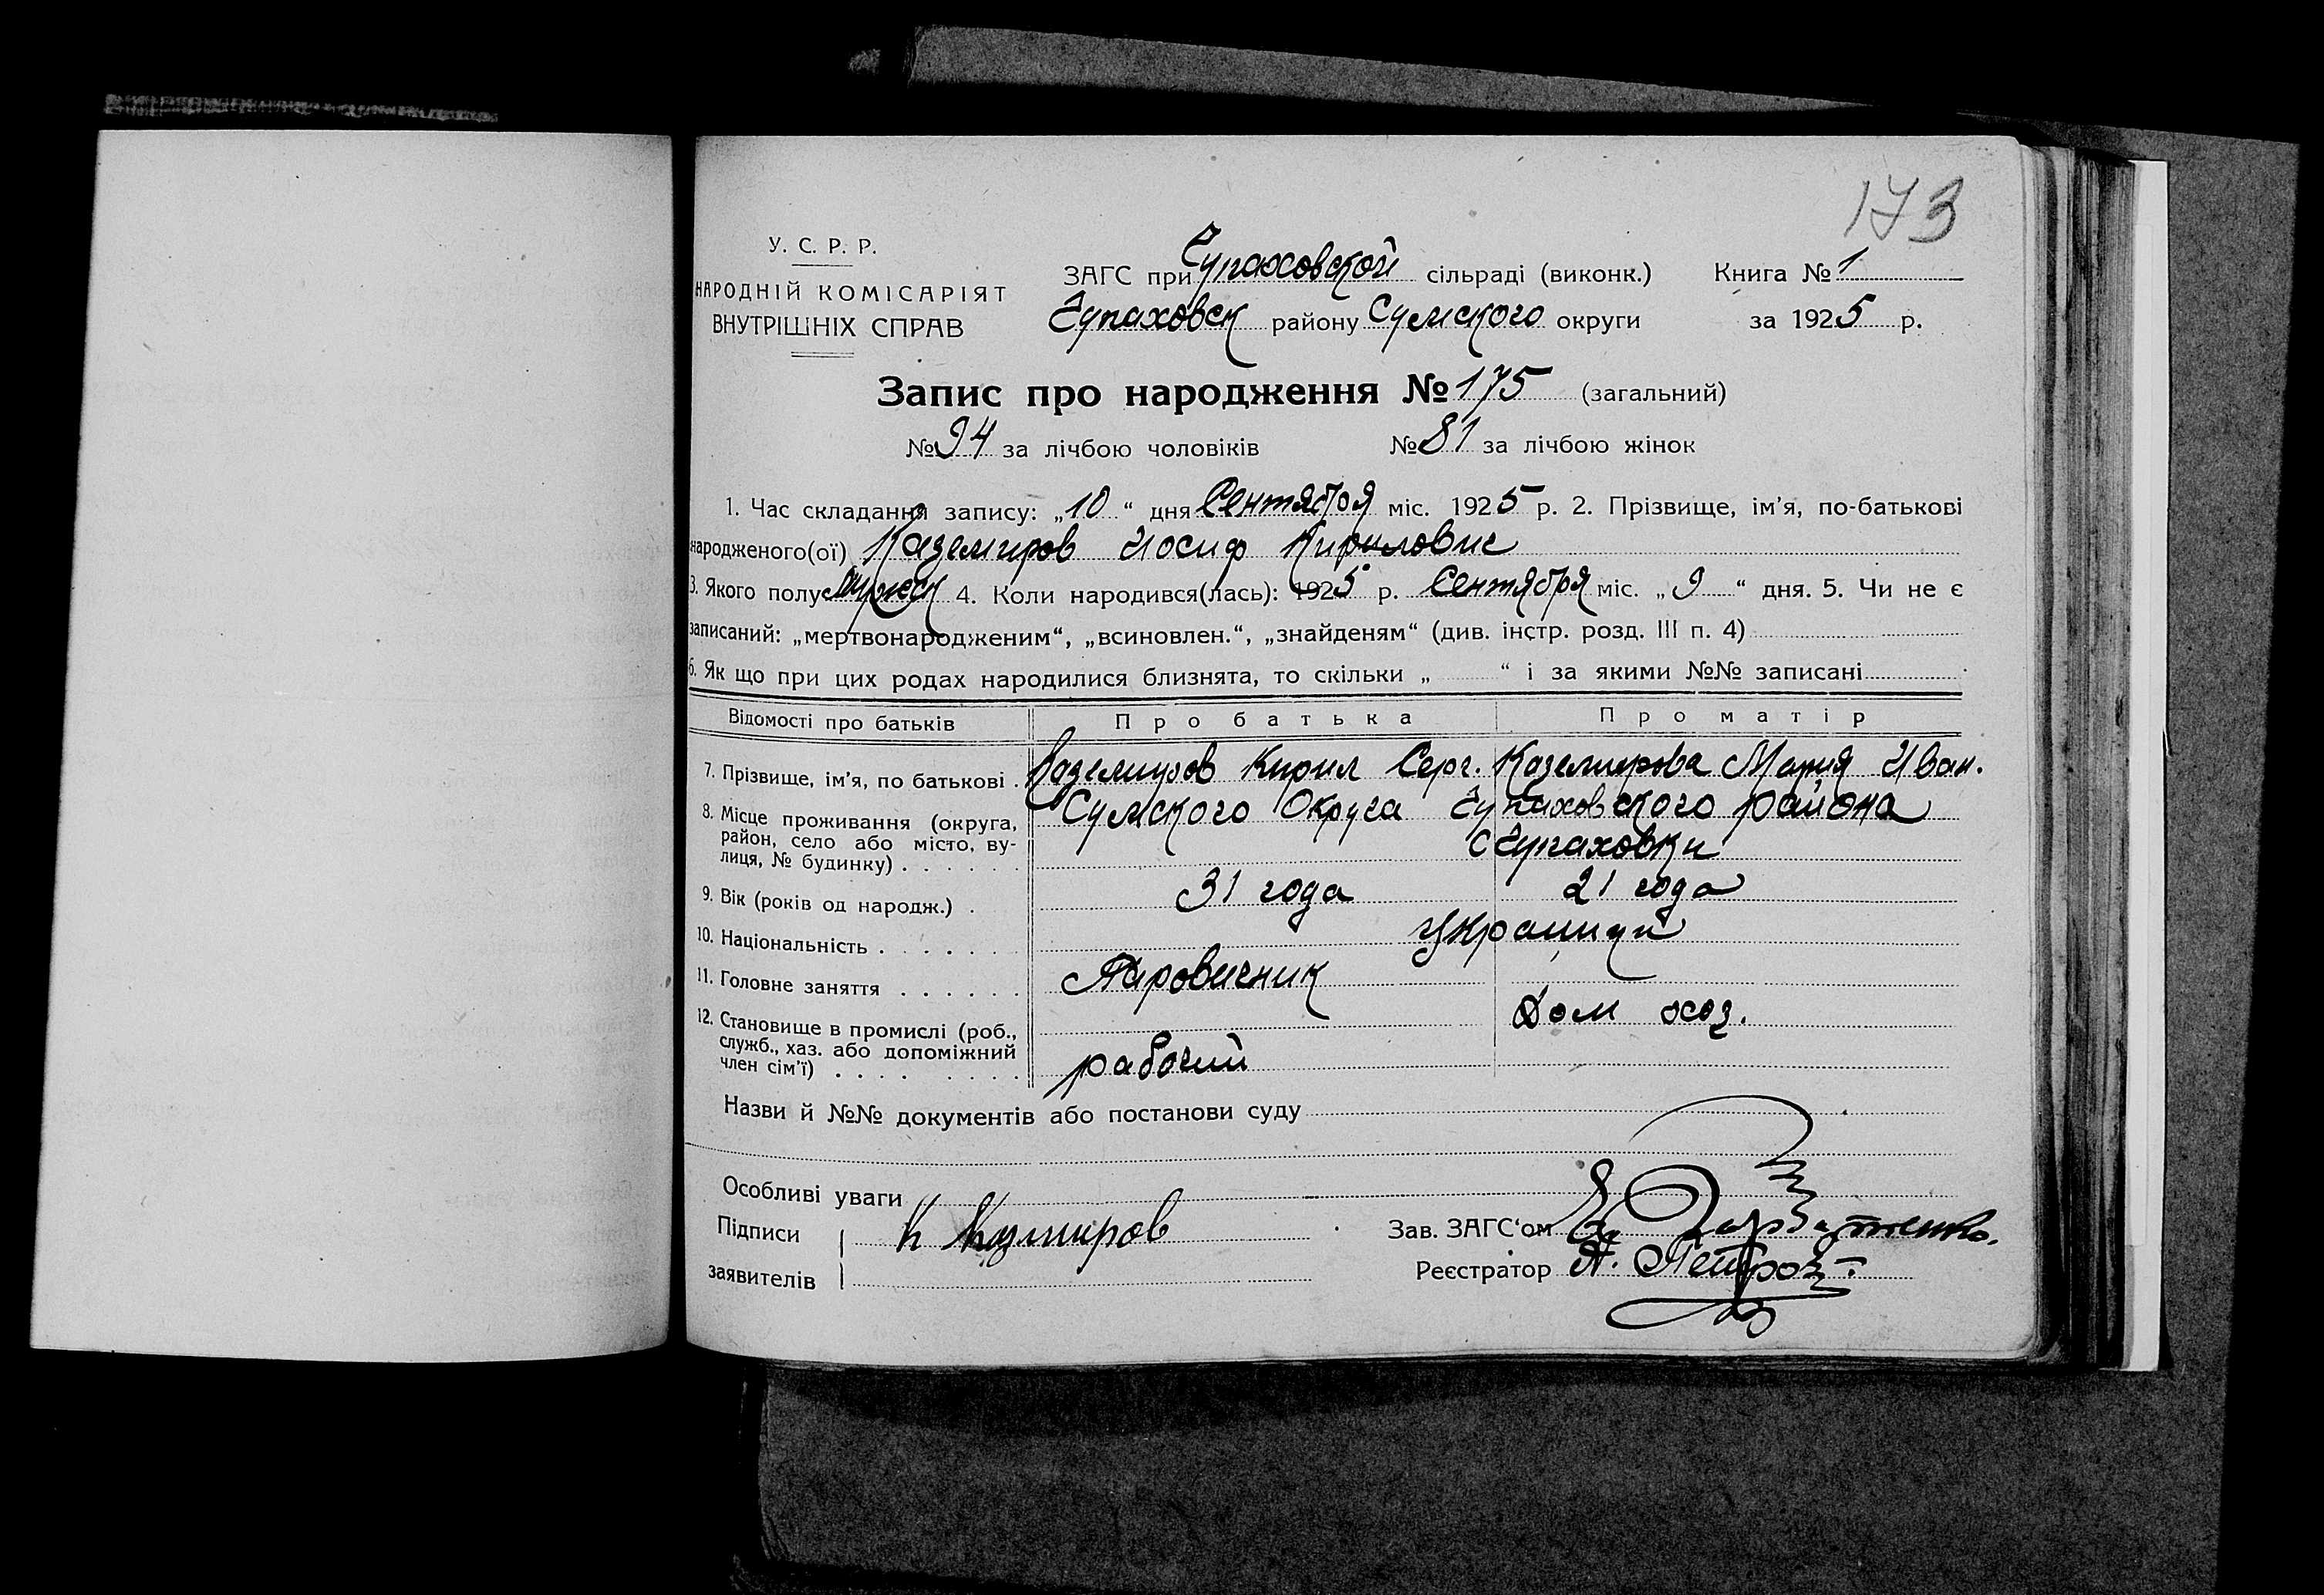 173
У. С. Р. Р.
НАРОДНІЙ КОМІСАРІЯТ
ВНУТРІШНІХ СПРАВ
ЗАГС при Чупаховской сільраді (виконк.) Книга № 1
Чупаховск району Сумского округи за 1925 р.
Запис про народження № 175 (загальний)
№ 94 за лічбою чоловіків № 81 за лічбою жінок
1. Час складання запису: „10“ дня Сентября міс. 1925 р. 2. Прізвище, ім’я, по-батькові
народженого(ої) Каземиров Иосиф Кирилович
3. Якого полу мужеск 4. Коли народився(лась): 1925 р. Сентября міс. „9“ дня. 5. Чи не є
записаний: „мертвонародженим“, „всиновлен.“, „знайденям“ (див. інстр. розд. III п. 4)
6. Як що при цих родах народилися близнята, то скільки „ “ і за якими №№ записані
Відомості про батьків Про батька Про матір
7. Прізвище, ім’я, по батькові . Каземиров Кирил Серг. Каземирова Мария Иван.
8. Місце проживання (округа, район, село або місто, ву-лиця, № будинку) . . . . . . Сумского Округа Чупаховского района
с Чупаховки
9. Вік (років од народж.) . 31 года 21 года
10. Національність . . . . . . . Украинци
11. Головне заняття . . . . . . Паровичник
12. Становище в промислі (роб., Дом хоз.
служб., хаз. або допоміжний
член сім’ї) . . . . . . . . рабочий
Назви й №№ документів або постанови суду
Особливі уваги
Підписи К Казмиров Зав. ЗАГС‘ом
заявителів Реєстратор А. Петров